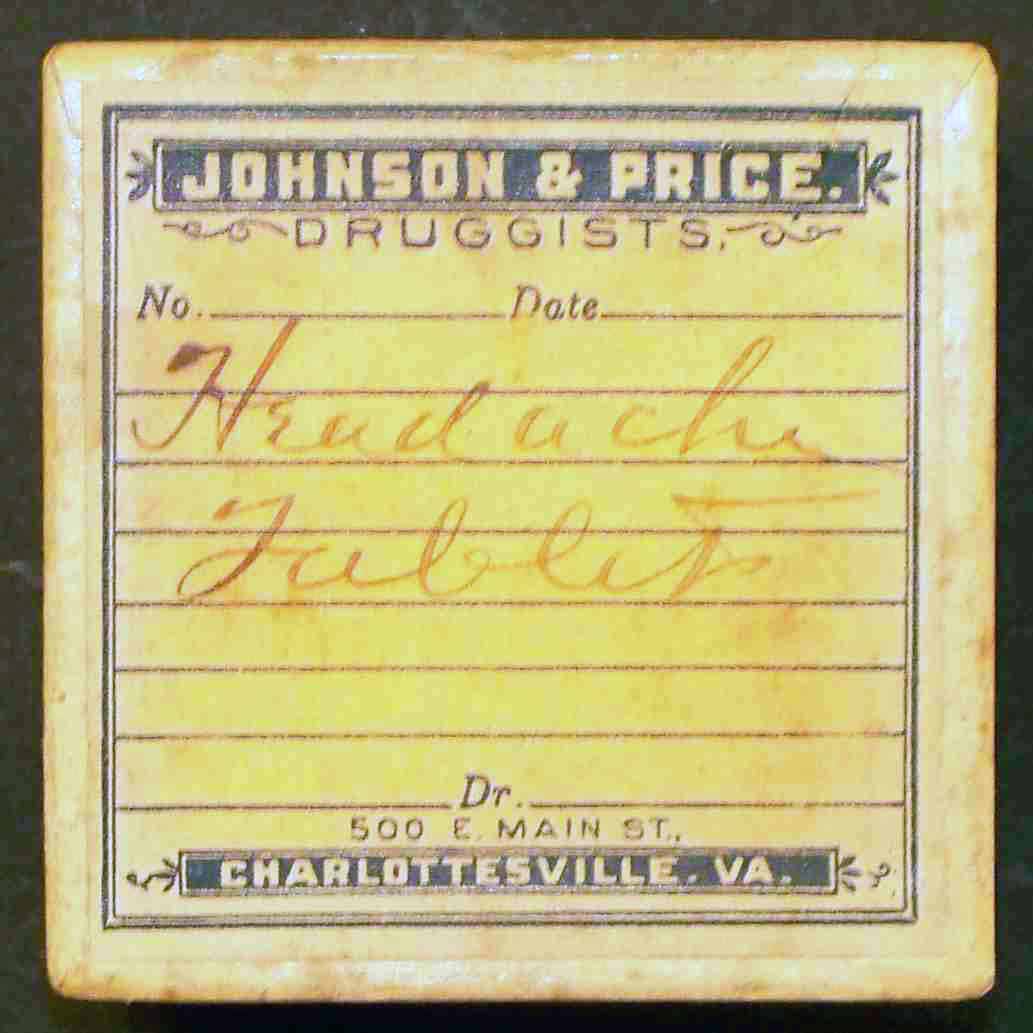 JOHNSON & PRICE.
DRUGGISTS.
No. Date
Headache
Tablets
Dr.
500 E. MAIN ST.,
CHARLOTTESVILLE. VA.